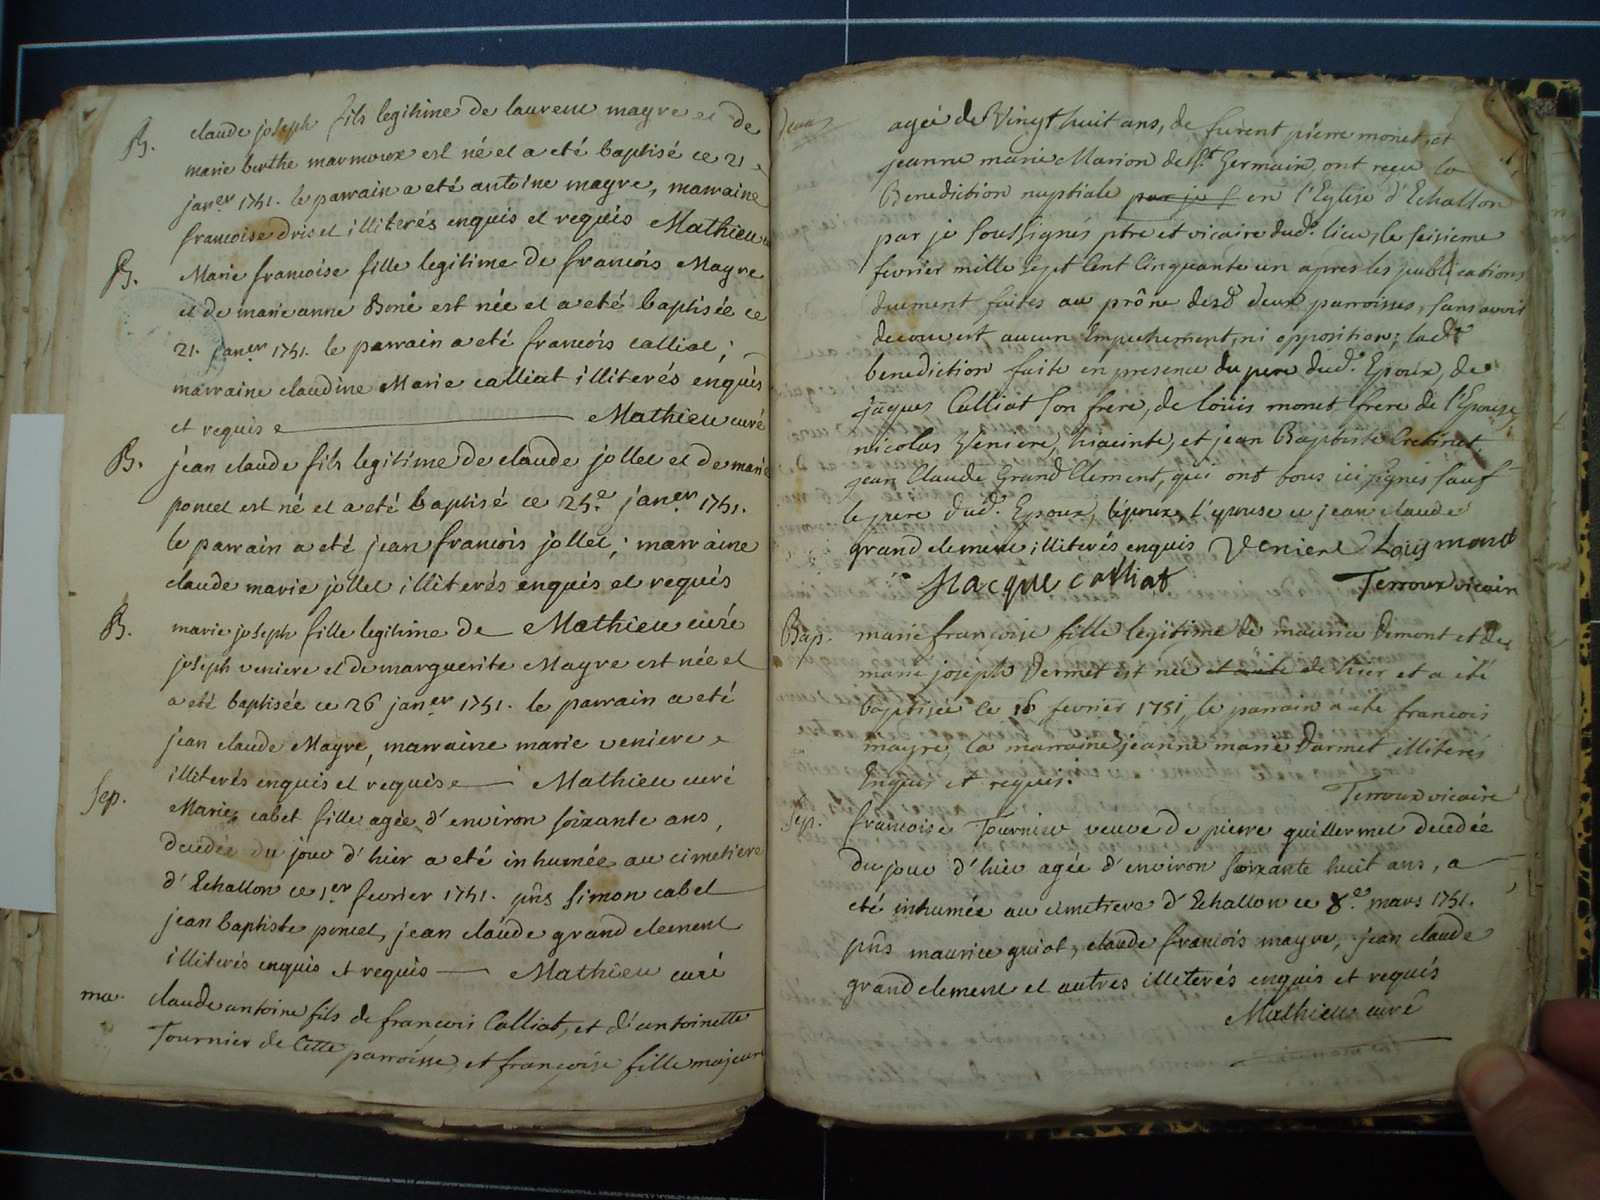 B. claude joseph fils legitime de laurent mayre et de
marie berthe marmoux est né et a eté baptisé ce 21
janer 1751. le parrain a eté antoine mayre, marraine
francoise driset illiterés enquis et requis Mathieu
B. Marie francoise fille legitime de francois Mayre
et de marie anne Boné est née et a eté baptisée ce
21. janer 1751. le parrain a eté francois calliat;
marraine claudine Marie calliat illiterés enquis
et requis Mathieu curé
B. jean claude fils legitime de claude jollet et de marie
poncet est né et a eté baptisé ce 25e janer 1751.
le parrain a eté jean francois jollet; marraine
claude marie jollet illiterés enquis et requis
B. marie joseph fille legitime de Mathieu curé
joseph veniere et de marguerite Mayre est née et
a eté baptisée ce 26 janer 1751. le parrain a eté
jean claude Mayre, marraine marie veniere
illiterés enquis et requis Mathieu curé
sep. Marie cabet fille agée d'environ soixante ans,
decedée du jour d'hier a eté inhumée au cimetiere
d'Echallon ce 1er fevrier 1751. pñs simon cabet
jean baptiste poncet, jean claude grand clement
illiterés enquis et requis Mathieu curé
ma. claude antoine fils de francois Calliat, et d'antoinette
Tournier de Cette parroisse, et françoise fille majeure
agée de Vingt huit ans, de furent pierre monet, et
jeanne marie Marion de St Germain, ont reçu la
Benediction nuptiale par je s en l'Eglise d'Echallon
par je soussignés ptre et vicaire dud. lieu, le seisieme
fevrier mille sept Cent Cinquante un apres les publications
duement faites au prône desd. deux parroisses, sans avoir
decouvert aucun Empechement, ni opposition; lad.
benediction faite en presence du pere dud. Epoux, de
jaques Calliat son frere, de loüis monet frere de l'Epouse,
nicolas Veniere, hiacinte, et jean Baptiste Cretinet
jean Claude Grand Clement, qui ont tous ici signés sauf
le pere dud. Epoux, lépoux, l'epouse et jean claude
grand clement illiterés enquis Veniere Loüy monet
Jacque calliat Terroux vicaire
Bap. marie françoise fille legitime de maurice Demont et de
marie josephe Dermet est née et aété de hier et a été
baptisée le 16 fevrier 1751, le parrain a été francois
mayre, la marraine jeanne marie Darmet illiterés
Enquis et requis. Terroux vicaire
sep. francoise Tournier veuve de pierre guillermet decedée
du jour d'hier agée d'environ soixante huit ans, a
eté inhumée au cimetiere d'Echallon ce 8e mars 1751.
pñs maurice guiot, claude francois mayre, jean claude
grand clement et autres illeterés enquis et requis
Mathieu curé